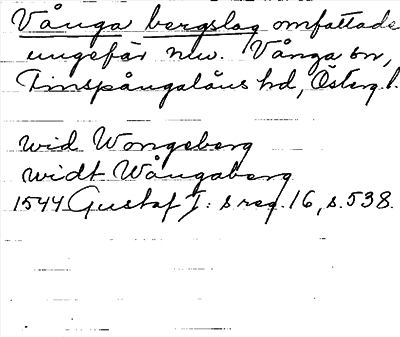 Vånga bergslag omfattade
ungefär nuv. Vånga sn,
Finspångaläns hd, Österg.l.
wid Wongeberg
widt Wångaberg
1544 Gustaf I:s reg. 16, s. 538.